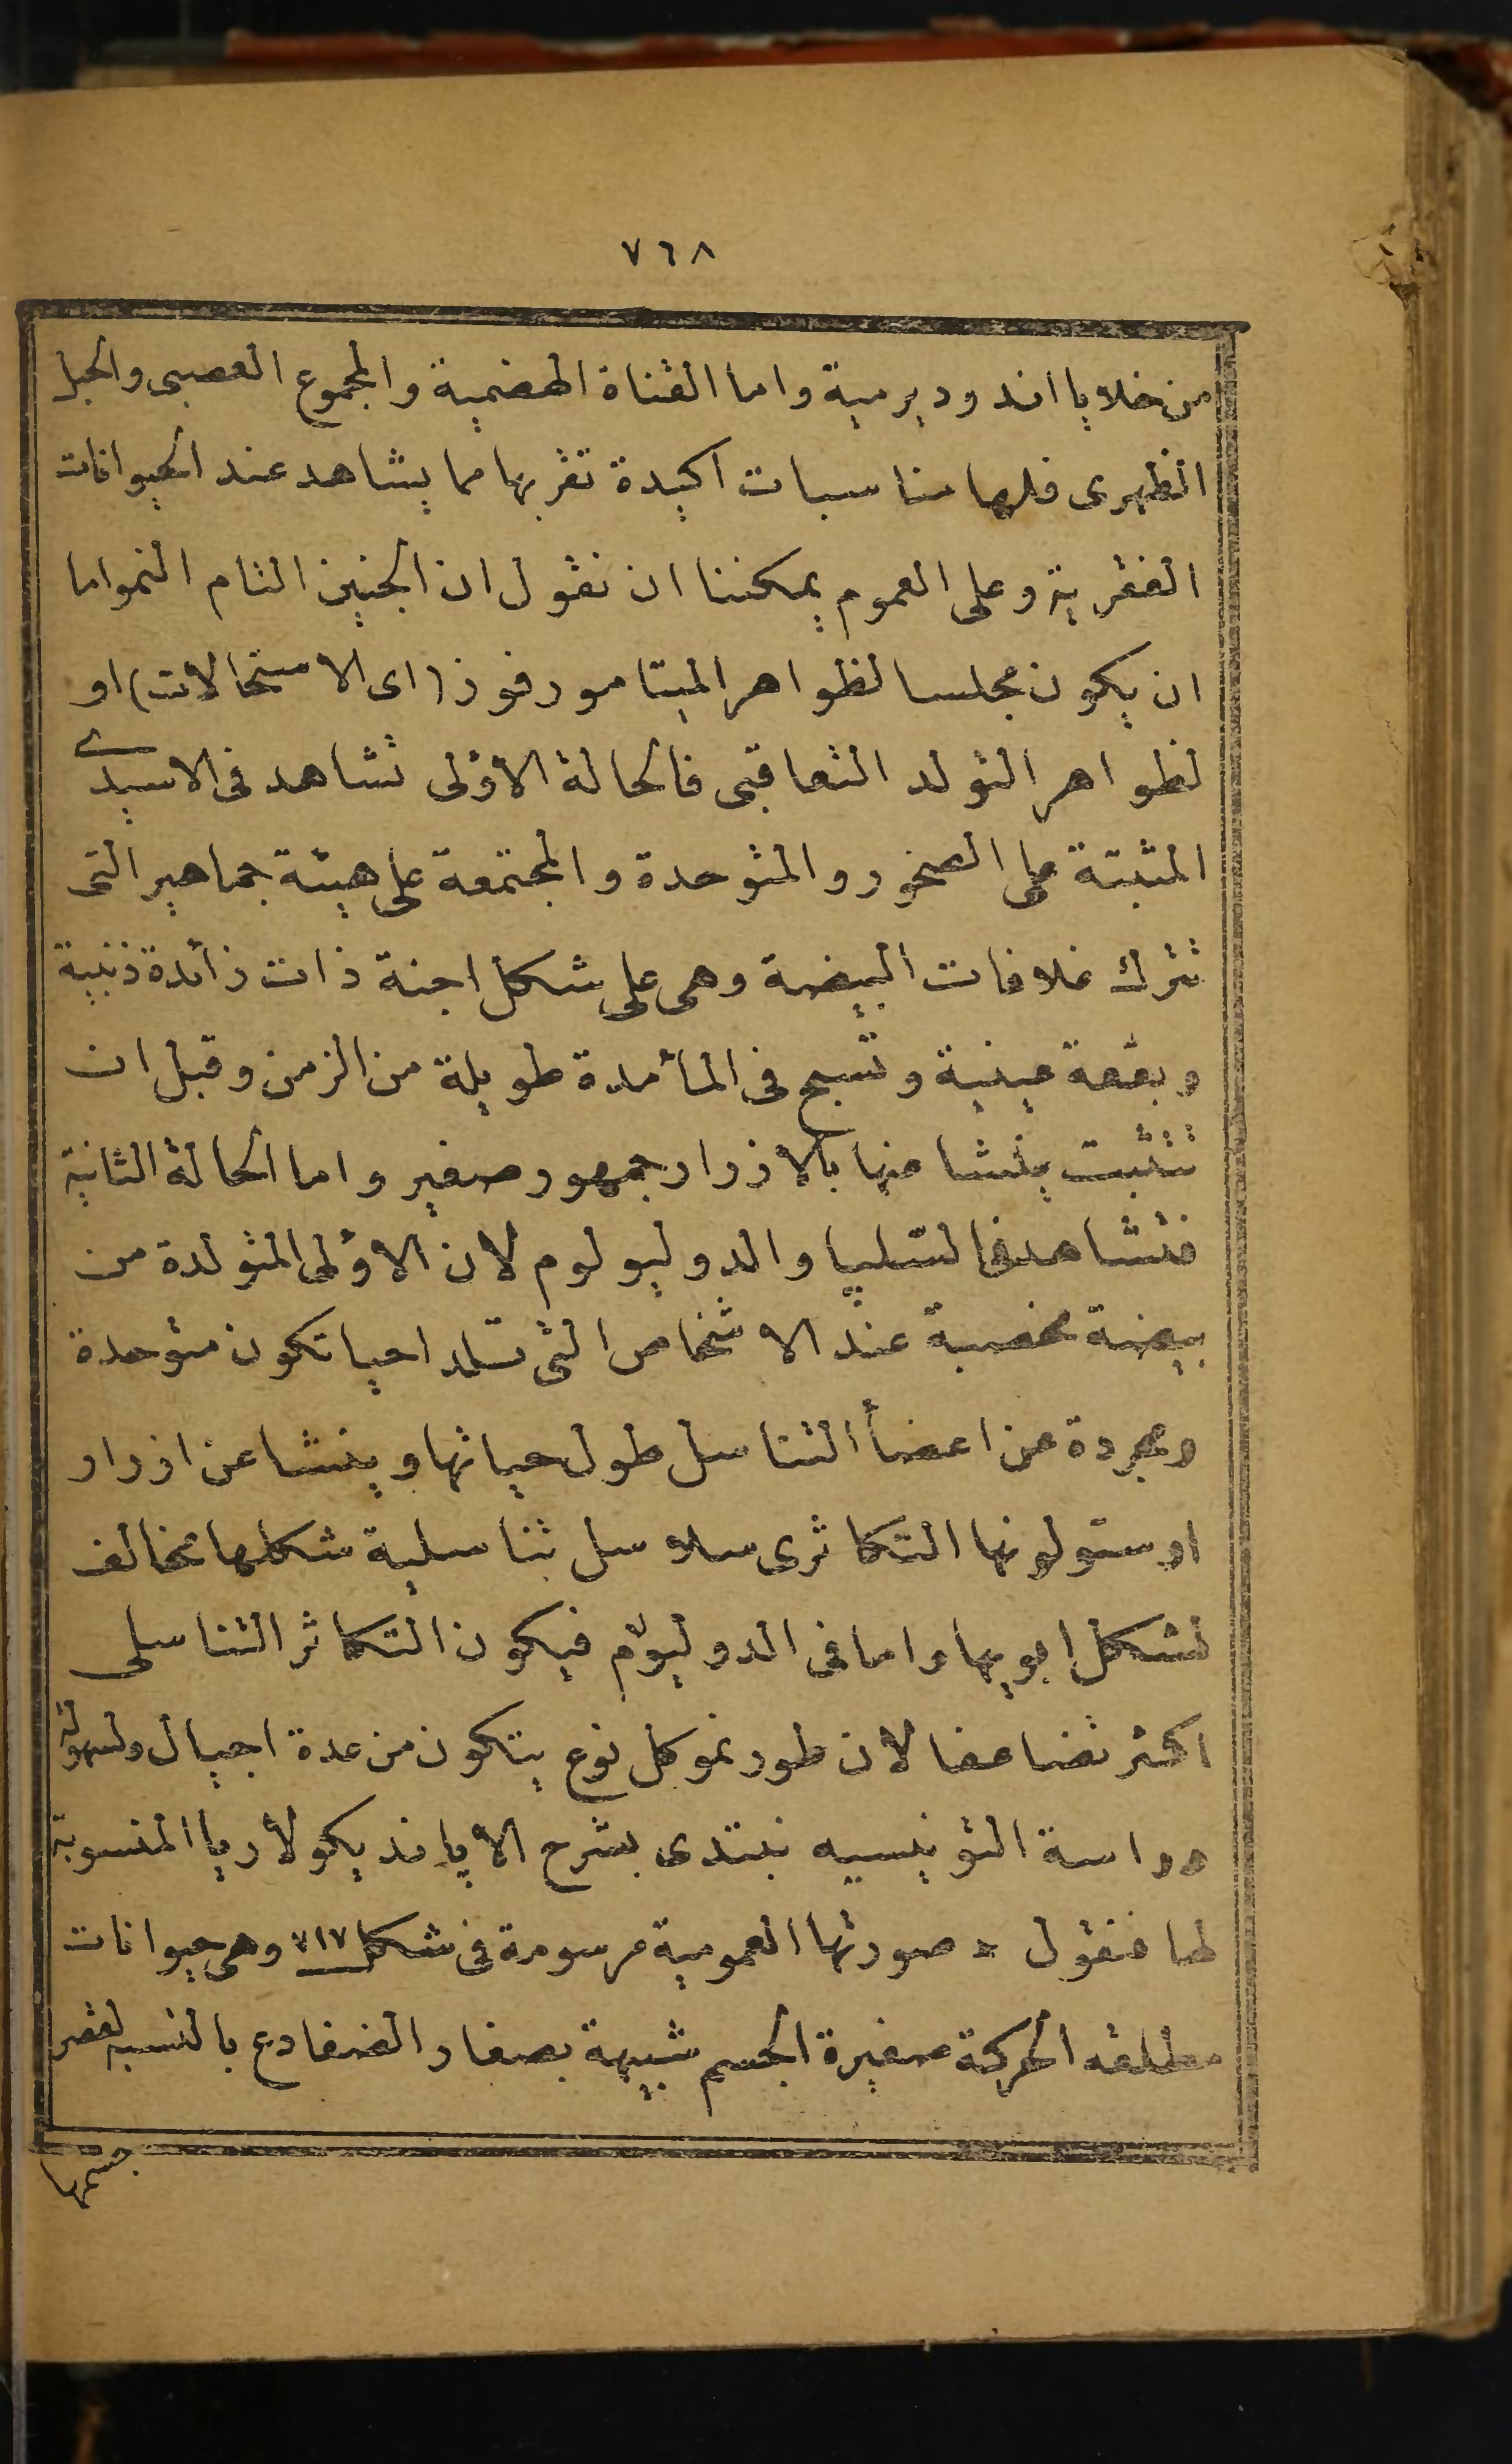 ٧٦٨
من خلايا اندوديرمية واما القناة الهضمية والمجموع العصبى والحبل
الظهرى فلها مناسبات اكيدة تقربها مما يشاهد عند الحيوانات
الفقرية وعلى العموم يمكننا ان نقول ان الجنين التام النمو اما
ان يكون مجلسا لظواهر الميتامورفوز (اى الاستحالات) او
لظواهر التولد التعاقبى فالحالة الأولى تشاهد فى الاسيدى
المثبتة على الصخور والمتوحدة والمجتمعة على هيئة جماهير التى
تترك غلافات البيضة وهى على شكل اجنة ذات زائدة ذنبية
وبقعة عينية وتسبح فى الماء مدة طويلة من الزمن وقبل ان
تتثبت ينشا منها بالازرار جمهور صغير واما الحالة الثانية
فتشاهد فى السلپا والدوليولوم لان الاولى المتولدة من
بيضة مخصبة عند الاشخاص التى تلد احيا تكون متوحدة
ومجردة عن اعضأ التناسل طول حياتها وينشا عن ازرار
اوستولونها التكاثرى سلاسل تناسلية شكلها مخالف
لشكل ابويها واما فى الدوليوم فيكون التكاثر التناسلى
اكثر تضاعفا لان طور نمو كل نوع يتكون من عدة اجيال ولسهولة
دراسة التونيسيه نبتدى بشرح الأپانديكولأريا المنسوبة
لها فنقول * صورتها العمومية مرسومة فى شكل ٧١٧ وهى حيوانات
مطلقه الحركة صغيرة الجسم شبيهة بصغار الضفادع بالنسبه لقصر
جسمها